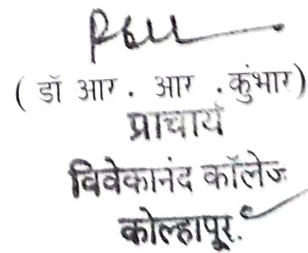 ( डॉ आर . आर . कुंभार)
प्राचार्य
विवेकानंद कॉलेज
कोल्हापूर.